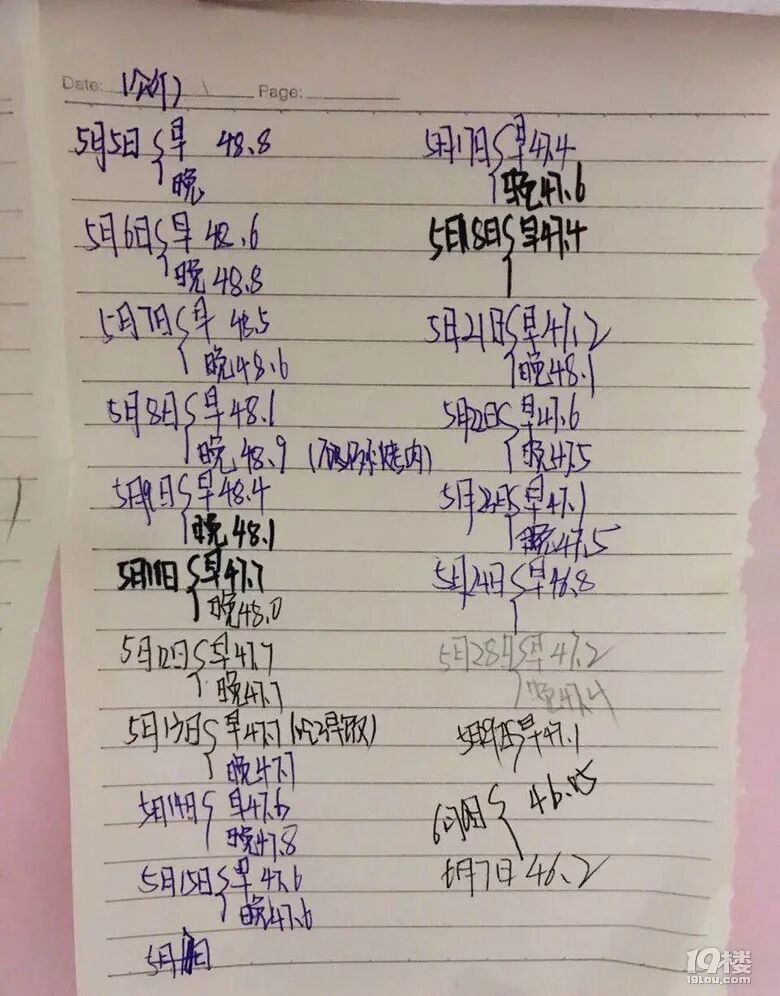 Date: (公斤)
Page:
5月5日 早 48.8
晚
5月6日 早 48.6
晚 48.8
5月7日 早 48.5
晚48.6
5月8日 早48.1
晚 48.9 (烤肉)
5月9日 早48.4
晚48.1
5月11日 早47.7
晚48.0
5月12日 早47.7
晚47.7
5月13日 早47.7 (吃2早饭)
晚47.7
5月14日 早47.6
晚47.8
5月15日 早47.6
晚47.6
5月 日
5月17日 早47.4
晚47.6
5月18日 早47.4
5月21日 早47.2
晚48.1
5月22日 早47.6
晚47.5
5月23日 早47.1
晚47.5
5月24日 早46.8
5月28日 早47.2
晚47.4
5月29日 早47.1
6月 日 46.05
6月7日 46.2
19楼
19lou.com